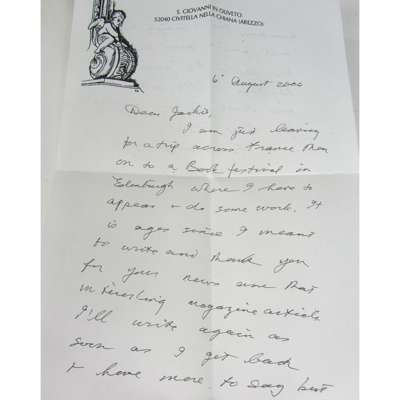 S. GIOVANNI IN OLIVETO
52040 CIVITELLA NELLA CHIANA (AREZZO)
6° August 2000
Dear Jackie,
I am just leaving
for a trip across France then
on to a Book festival in
Edinburgh where I have to
appear & do some work. It
is ages since I meant
to write and thank you
for your news and that
interesting magazine article
I'll write again as
soon as I get back
& have more to say but